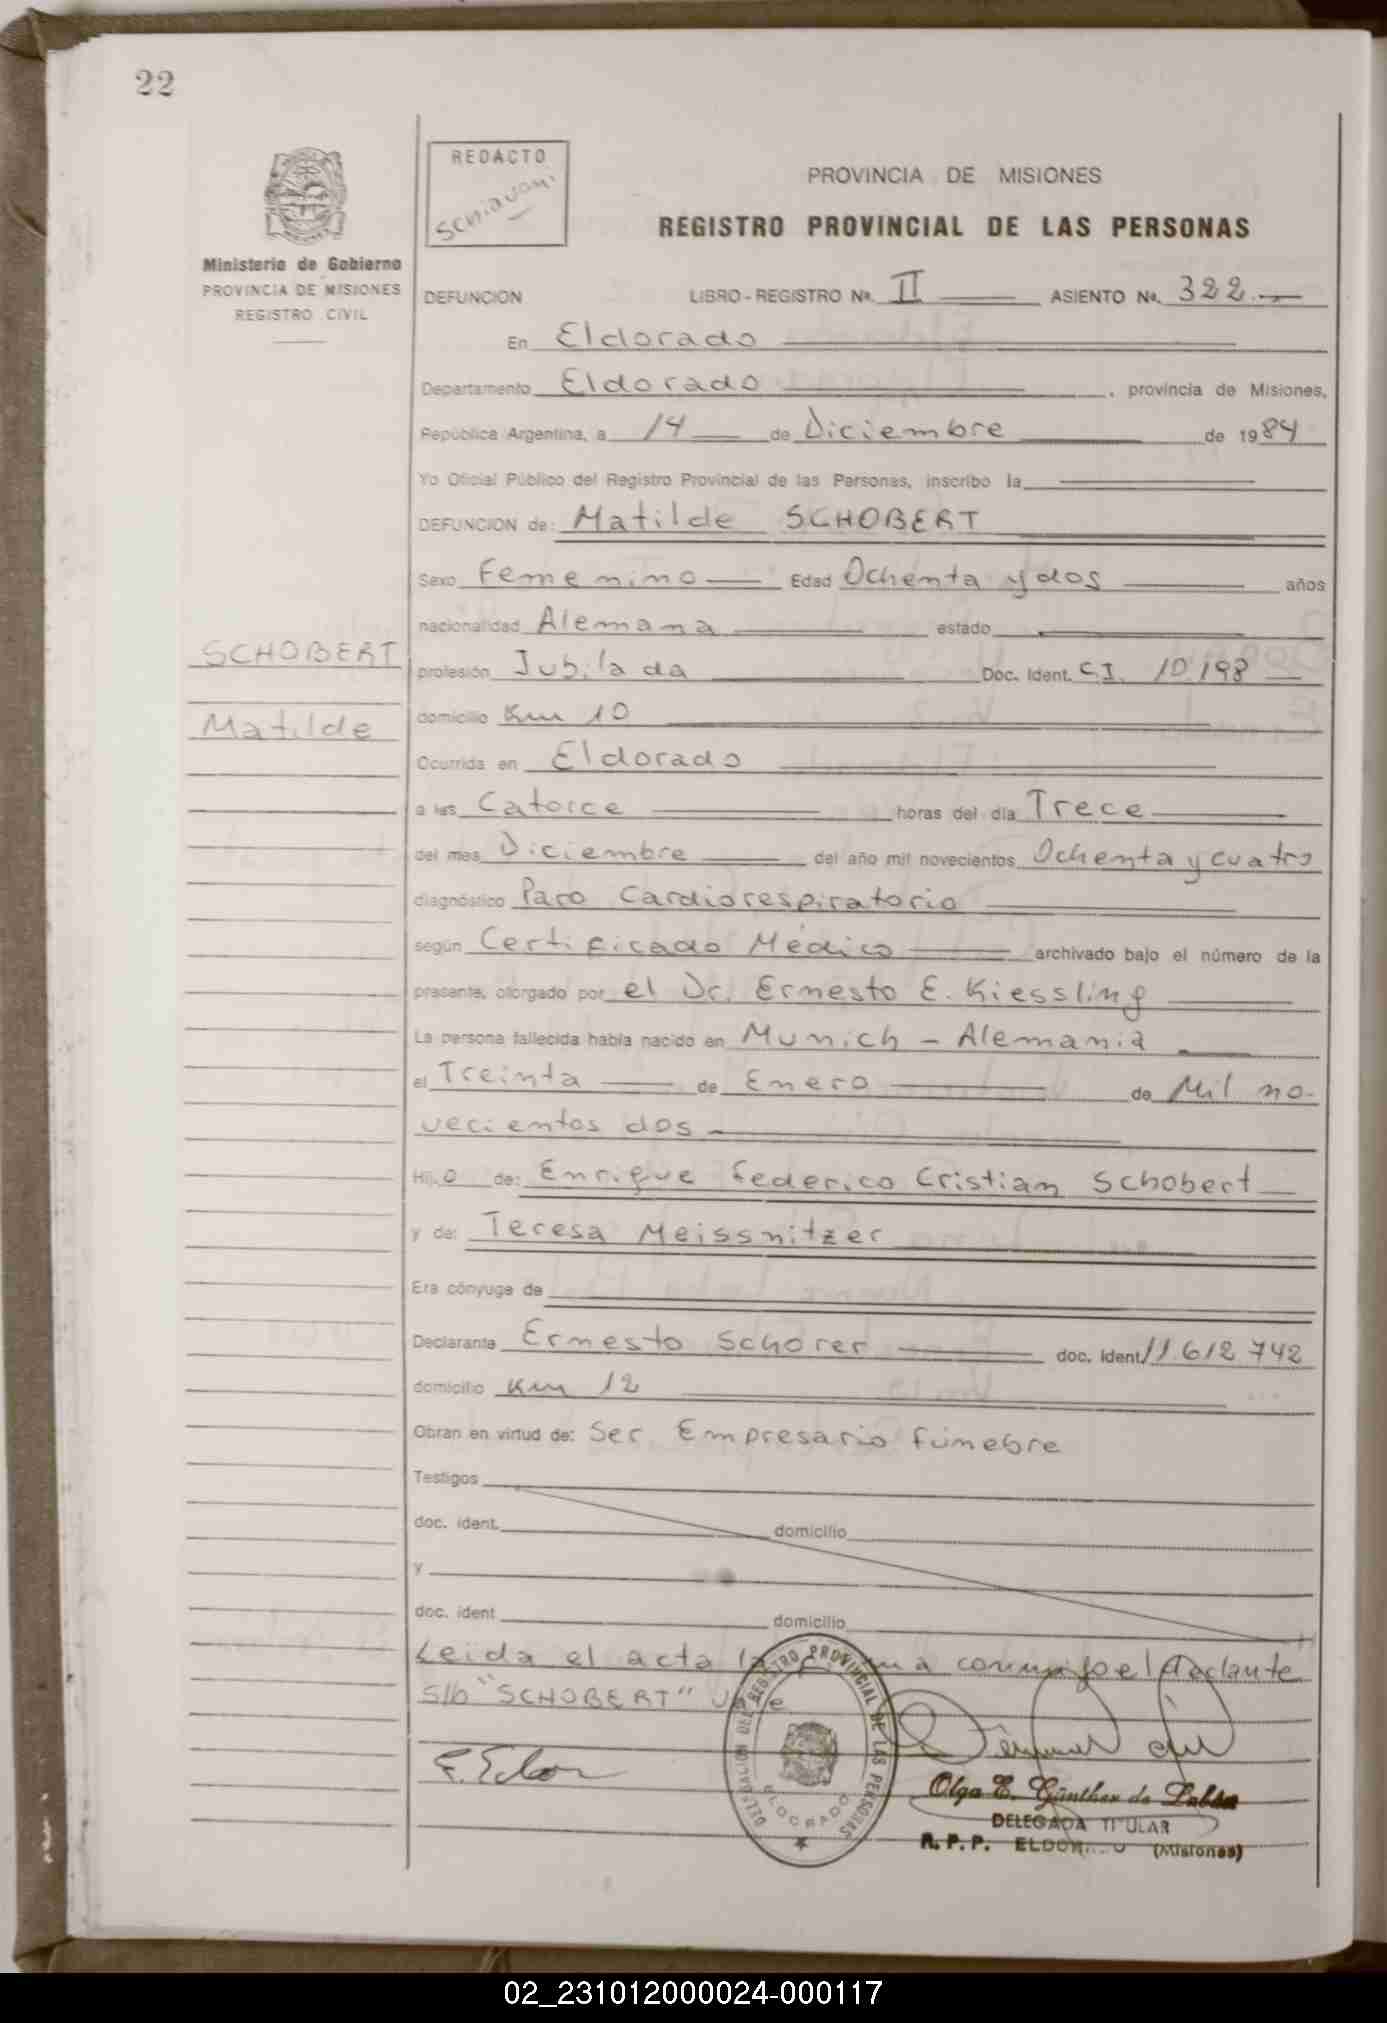 22
REDACTO
Schiavoni
PROVINCIA DE MISIONES
REGISTRO PROVINCIAL DE LAS PERSONAS
Ministerio de Gobierno
PROVINCIA DE MISIONES
REGISTRO CIVIL
DEFUNCION LIBRO-REGISTRO Nº. II ASIENTO Nº. 322.
En Eldorado
Departamento Eldorado, provincia de Misiones,
República Argentina, a 14 de Diciembre de 1984
Yo Oficial Público del Registro Provincial de las Personas, inscribo la
DEFUNCION de: Matilde SCHOBERT
Sexo Femenino Edad Ochenta y dos años
nacionalidad Alemana estado
SCHOBERT
Matilde
profesión Jubilada Doc. Ident. C.I. 10.198
domicilio Km 10
Ocurrida en Eldorado
a las Catorce horas del día Trece
del mes Diciembre del año mil novecientos Ochenta y cuatro
diagnóstico Paro Cardiorespiratorio
según Certificado Médico archivado bajo el número de la
presente, otorgado por el Dr. Ernesto E. Kiessling
La persona fallecida había nacido en Munich - Alemania
el Treinta de Enero de Mil no-
vecientos dos
Hij.o de: Enrique Federico Cristian Schobert
y de: Teresa Meissnitzer
Era cónyuge de
Declarante Ernesto Schorer doc. Ident. 11.612.742
domicilio Km 12
Obran en virtud de: Ser Empresario fúnebre
Testigos
doc. ident. domicilio
y
doc. ident. domicilio
Leida el acta la conmigo el declarante
S/b "SCHOBERT" Vale
DELEGACION DEL REGISTRO PROVINCIAL DE LAS PERSONAS
ELDORADO
Olga E. Günther de
DELEGADA TITULAR
R.P.P. ELDORADO (Misiones)
02_231012000024-000117